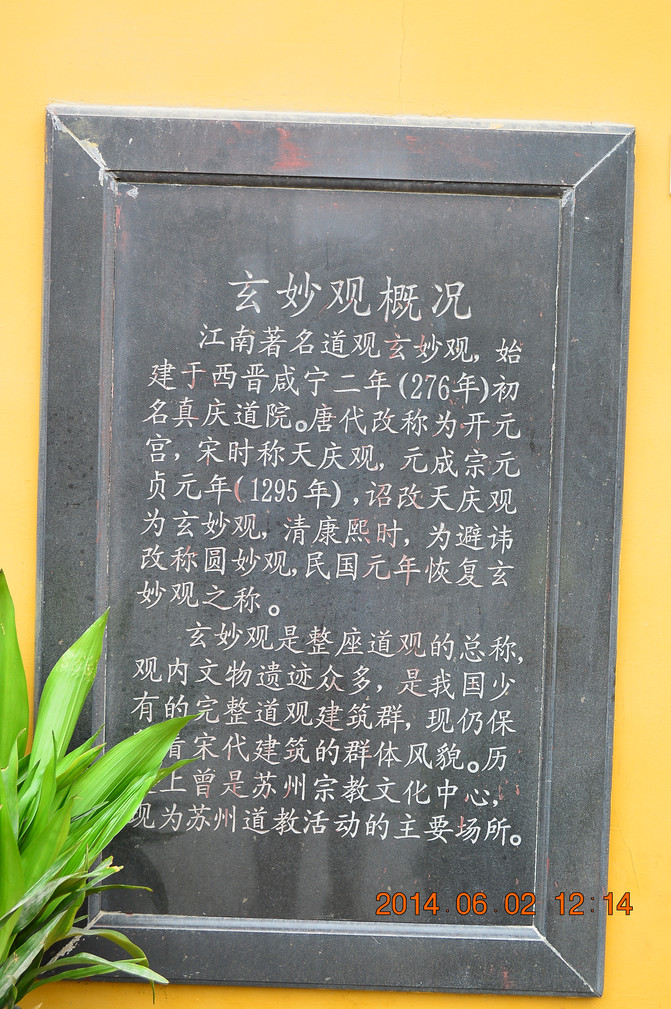 玄妙观概况
江南著名道观玄妙观，始
建于西晋咸宁二年(276年)初
名真庆道院。唐代改称为开元
宫，宋时称天庆观，元成宗元
贞元年(1295年)，诏改天庆观
为玄妙观，清康熙时，为避讳
改称圆妙观，民国元年恢复玄
妙观之称。
玄妙观是整座道观的总称，
观内文物遗迹众多，是我国少
有的完整道观建筑群，现仍保
着宋代建筑的群体风貌。历
上曾是苏州宗教文化中心，
现为苏州道教活动的主要场所。
2014.06.02 12:14